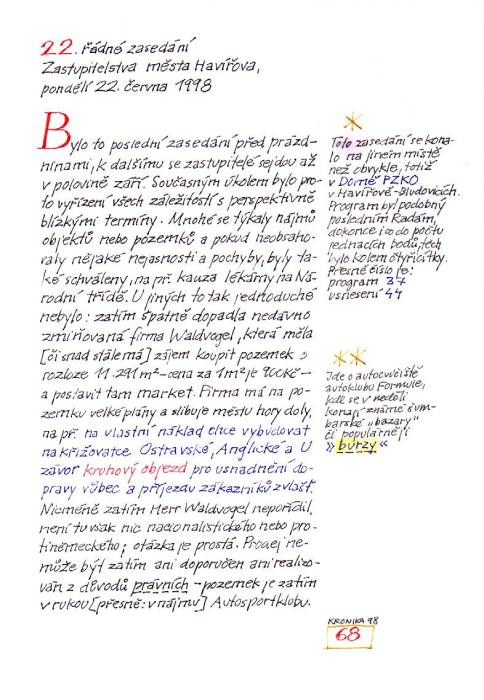 22. řádné zasedání
Zastupitelstva města Havířova,
pondělí 22. června 1998
Bylo to poslední zasedání před prázd-
ninami, k dalšímu se zastupitelé sejdou až
v polovině září. Současným úkolem bylo pro-
to vyřízení všech záležitostí s perspektivně
blízkými termíny. Mnohé se týkaly nájmů
objektů nebo pozemků a pokud neobsaho-
valy nějaké nejasnosti a pochyby, byly ta-
ké schváleny, na př. kauza lékárny na Ná-
rodní třídě. U jiných to tak jednoduché
nebylo: zatím špatně dopadla nedávno
zmiňovaná firma Waldvogel, která měla
[či snad stále má] zájem koupit pozemek o
rozloze 11.291 m² – cena za 1m² je 900Kč –
a postavit tam market. Firma má na po-
zemku velké plány a slibuje městu hory doly,
na př. na vlastní náklad chce vybudovat
na křižovatce Ostravské, Anglické a U
závor kruhový objezd pro usnadnění do-
pravy vůbec a příjezdu zákazníků zvlášť.
Nicméně zatím Herr Waldvogel neporídil,
není tu však nic nacionalistického nebo pro-
tiněmeckého; otázka je prostá. Prodej ne-
může být zatím ani doporučen ani realizo-
ván z důvodů právních – pozemek je zatím
v rukou [přesně: v nájmu] Autosportklubu.
*
Toto zasedání se kona-
lo na jiném místě
než obvykle, totiž
v Domě PZKO
v Havířově-Bludovicích.
Program byl podobný
posledním Radám,
dokonce i co do počtu
jednacích bodů, těch
bylo kolem čtyřicítky.
Přesné číslo je:
program 37
usnesení 44
**
Jde o autocvičiště
autoklubu Formule,
kde se v neděli
konají známé šum-
barské „bazary"
či populárněji
» burzy «
KRONIKA 98
68